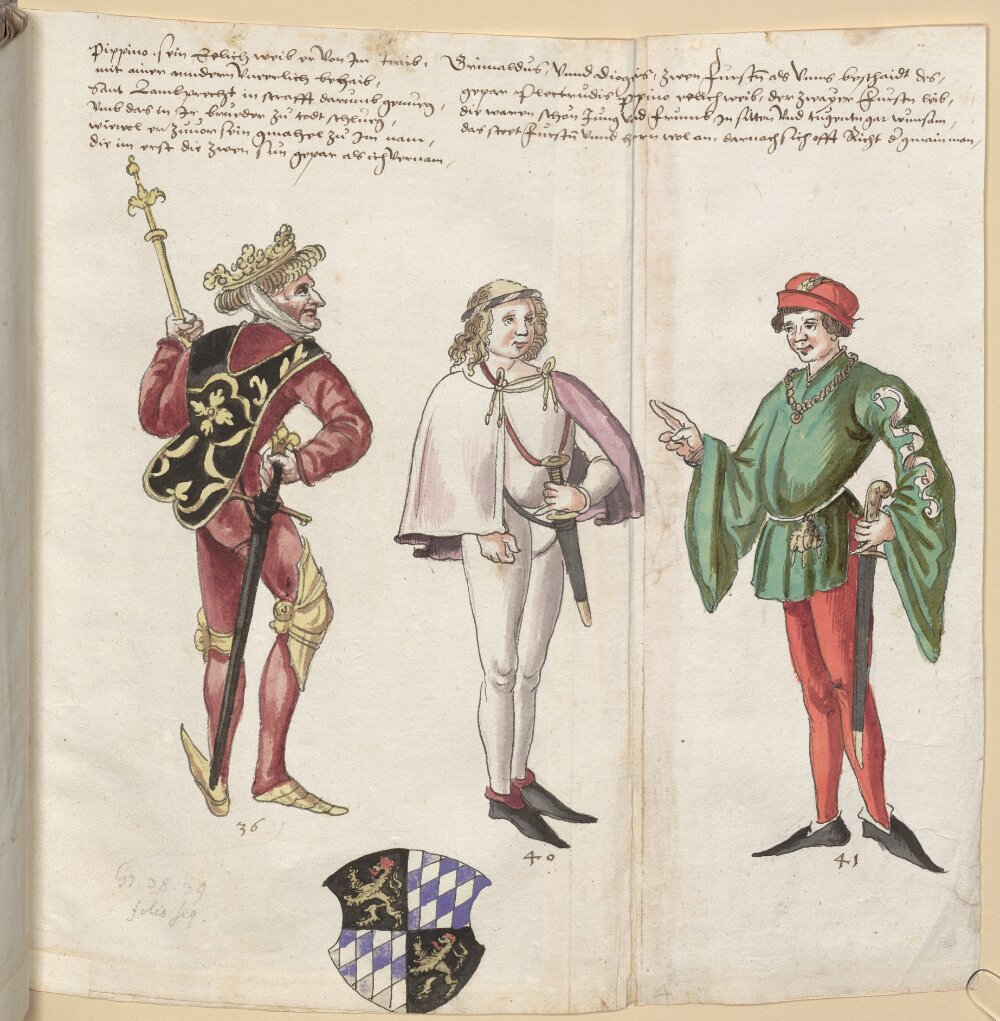 Pippino sein Eelich weib er von Im traib,
mit ainer anndern Vneerlich behaib,
sant Lambrecht in strafft darumb genueg,
Vmb das in Ir brueder zu todt schlueg,
wiewol er zuuor sein gmahel zu Im nam,
die im erst die zwen sün gepar als ich vernam,
Grimaldus, Vnnd zwen Fursten als Vnns beschaidt des,
gepar Plectrudis Pipino eelich weib, der zwayer Fursten leib,
die waren schön Jung vnd frumb In sitten vnd tugenten gar wunsam,
das stet Fursten vnnd hern wol an, darnach sich offt Richt d' gmain man,
36
40
41
37. 38. 39
folio seq.